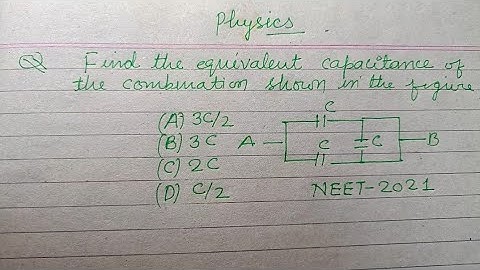 Physics
Q Find the equivalent capacitance of
the combination shown in the figure
C
(A) 3C/2
(B) 3C A C C B
(C) 2C
(D) C/2 NEET-2021